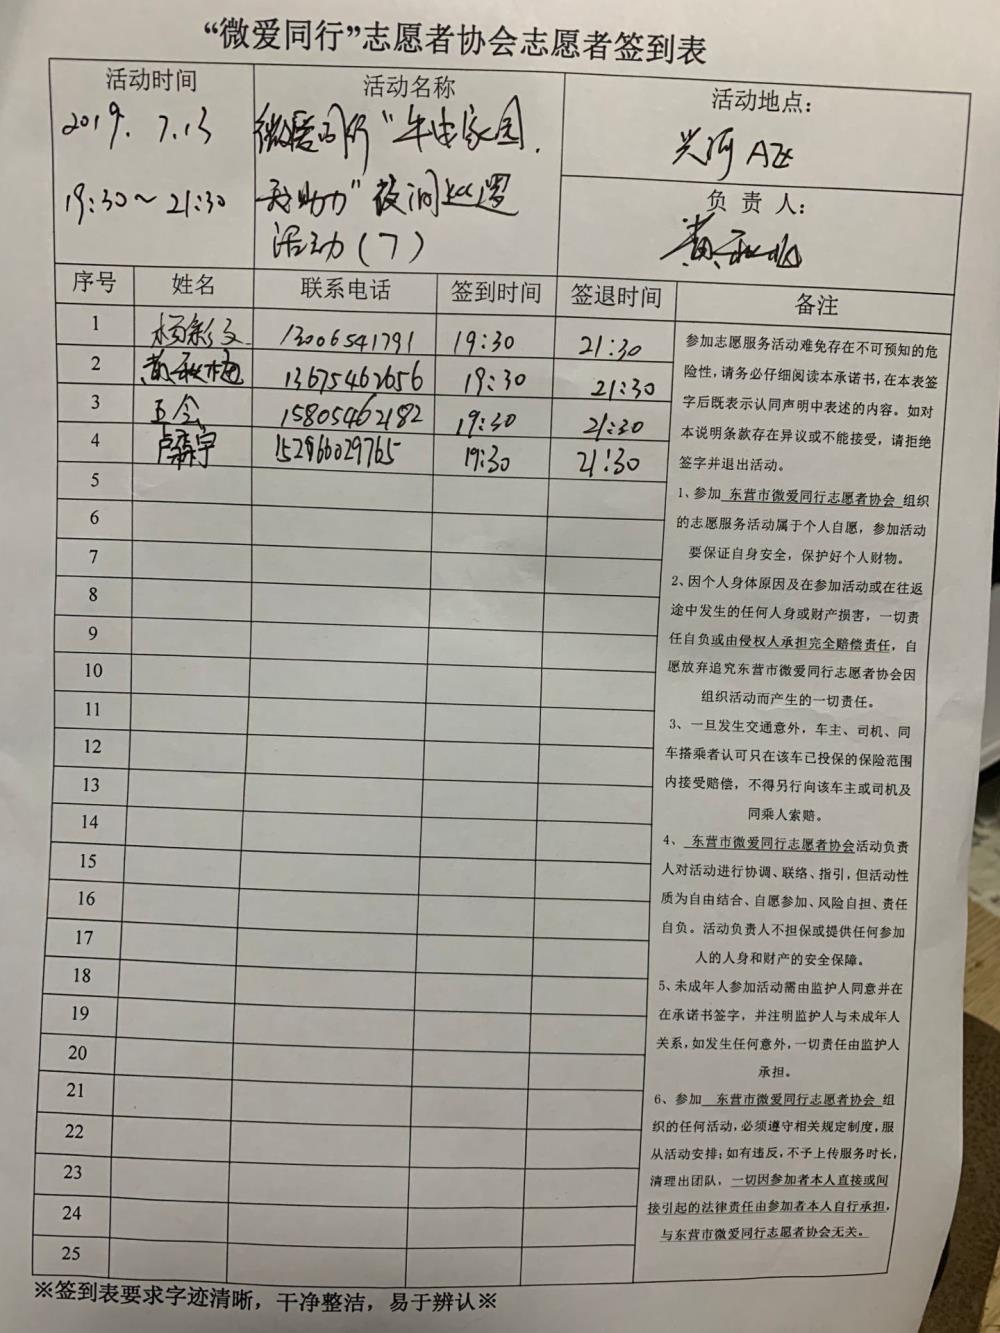 “微爱同行”志愿者协会志愿者签到表
活动时间
2019.7.13
19:30~21:30
活动名称
微爱同行“平安家园.
我助力”夜间巡逻
活动(7)
活动地点：
兴河A区
负责人：
黄秋梅
序号 姓名 联系电话 签到时间 签退时间 备注
1 杨彩文 13006541791 19:30 21:30
2 黄秋梅 13675462656 19:30 21:30
3 王会 15805462182 19:30 21:30
4 15266029765 19:30 21:30
5
6
7
8
9
10
11
12
13
14
15
16
17
18
19
20
21
22
23
24
25
参加志愿服务活动难免存在不可预知的危
险性，请务必仔细阅读本承诺书，在本表签
字后既表示认同声明中表述的内容。如对
本说明条款存在异议或不能接受，请拒绝
签字并退出活动。
1、参加 东营市微爱同行志愿者协会 组织
的志愿服务活动属于个人自愿，参加活动
要保证自身安全，保护好个人财物。
2、因个人身体原因及在参加活动或在往返
途中发生的任何人身或财产损害，一切责
任自负或由侵权人承担完全赔偿责任，自
愿放弃追究东营市微爱同行志愿者协会因
组织活动而产生的一切责任。
3、一旦发生交通意外，车主、司机、同
车搭乘者认可只在该车已投保的保险范围
内接受赔偿，不得另行向该车主或司机及
同乘人索赔。
4、 东营市微爱同行志愿者协会活动负责
人对活动进行协调、联络、指引，但活动性
质为自由结合、自愿参加、风险自担、责任
自负。活动负责人不担保或提供任何参加
人的人身和财产的安全保障。
5、未成年人参加活动需由监护人同意并在
在承诺书签字，并注明监护人与未成年人
关系，如发生任何意外，一切责任由监护人
承担。
6、参加 东营市微爱同行志愿者协会 组
织的任何活动，必须遵守相关规定制度，服
从活动安排；如有违反，不予上传服务时长，
清理出团队，一切因参加者本人直接或间
接引起的法律责任由参加者本人自行承担，
与东营市微爱同行志愿者协会无关。
※签到表要求字迹清晰，干净整洁，易于辨认※